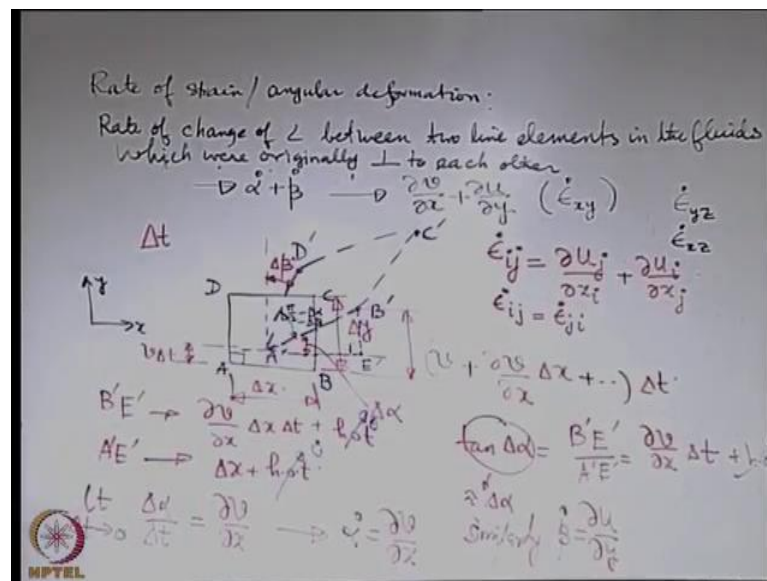 Rate of strain / angular deformation:
Rate of change of ∠ between two line elements in the fluids
which were originally ⊥ to each other
→ α̇ + β̇ → ∂v/∂x + ∂u/∂y (ε̇xy) ε̇yz
ε̇xz
Δt
ε̇ij = ∂uj/∂xi + ∂ui/∂xj
ε̇ij = ε̇ji
y
x
D
D'
Δβ
C
C'
A
A'
B
B'
E'
Δy
vΔt
Δx
Δα
(v + ∂v/∂x Δx + ..) Δt
B'E' → ∂v/∂x Δx Δt + hot
A'E' → Δx + hot
tan Δα = B'E'/A'E' = ∂v/∂x Δt +
≈ Δα
lt Δt→0 Δα/Δt = ∂v/∂x → α̇ = ∂v/∂x
Similarly β̇ = ∂u/∂y
NPTEL